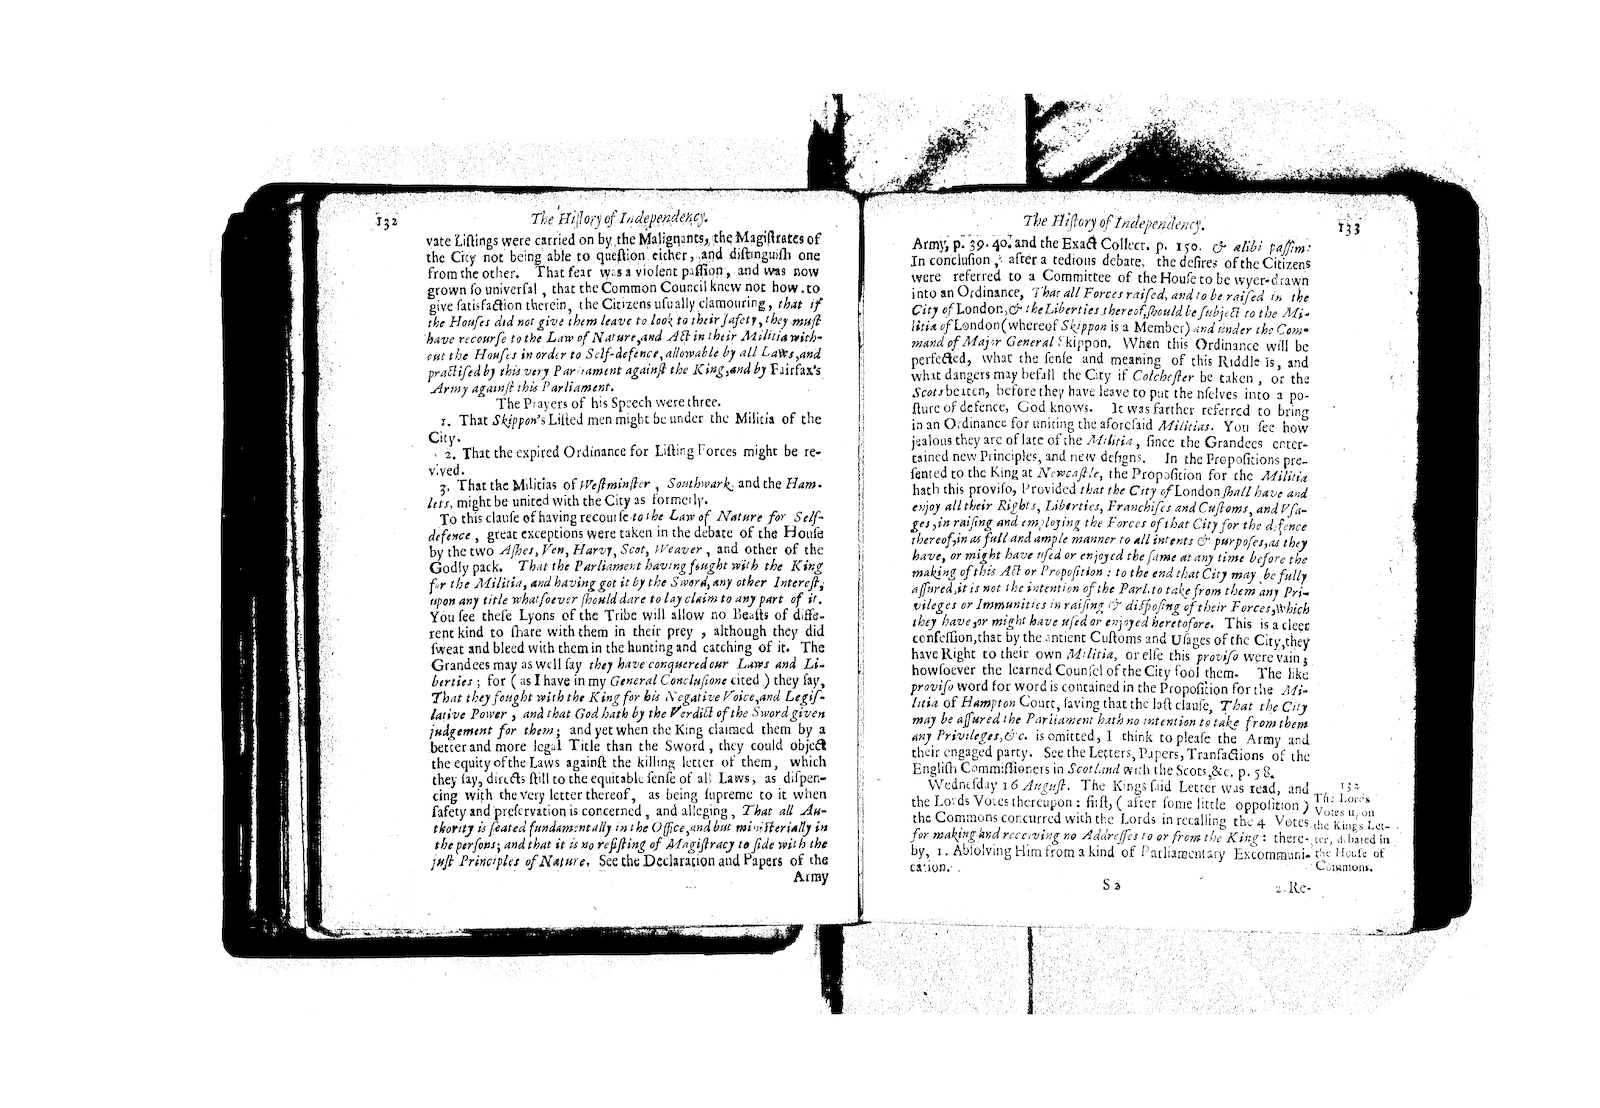 132
The Hiſtory of Independency.
vate Liſtings were carried on by the Malignants, the Magiſtrates of
the City not being able to queſtion either, and diſtinguiſh one
from the other. That fear was a violent paſſion, and was now
grown ſo univerſal, that the Common Council knew not how to
give ſatisfaction therein, the Citizens uſually clamouring, that if
the Houſes did not give them leave to look to their ſafety, they muſt
have recourſe to the Law of Nature, and Act in their Militia with-
out the Houſes in order to Self-defence, allowable by all Laws, and
practiſed by this very Parliament againſt the King, and by Fairfax's
Army againſt this Parliament.
The Prayers of his Speech were three.
1. That Skippon's Liſted men might be under the Militia of the
City.
2. That the expired Ordinance for Liſting Forces might be re-
vived.
3. That the Militias of Weſtminſter, Southwark, and the Ham-
lets, might be united with the City as formerly.
To this clauſe of having recourſe to the Law of Nature for Self-
defence, great exceptions were taken in the debate of the Houſe
by the two Aſhes, Ven, Harvy, Scot, Weaver, and other of the
Godly pack. That the Parliament having fought with the King
for the Militia, and having got it by the Sword, any other Intereſt,
upon any title whatſoever ſhould dare to lay claim to any part of it.
You ſee theſe Lyons of the Tribe will allow no Beaſts of diffe-
rent kind to ſhare with them in their prey, although they did
ſweat and bleed with them in the hunting and catching of it. The
Grandees may as well ſay they have conquered our Laws and Li-
berties; for (as I have in my General Concluſione cited) they ſay,
That they fought with the King for his Negative Voice, and Legiſ-
lative Power, and that God hath by the Verdict of the Sword given
judgement for them; and yet when the King claimed them by a
better and more legal Title than the Sword, they could object
the equity of the Laws againſt the killing letter of them, which
they ſay, directs ſtill to the equitable ſenſe of all Laws, as diſpen-
cing with the very letter thereof, as being ſupreme to it when
ſafety and preſervation is concerned, and alleging, That all Au-
thority is ſeated fundamentally in the Office, and but miniſterially in
the perſons; and that it is no reſiſting of Magiſtracy to ſide with the
juſt Principles of Nature. See the Declaration and Papers of the
Army
The Hiſtory of Independency.
133
Army, p. 39. 40. and the Exact Collect. p. 150. & alibi paſſim:
In concluſion, after a tedious debate, the deſires of the Citizens
were referred to a Committee of the Houſe to be wyer-drawn
into an Ordinance, That all Forces raiſed, and to be raiſed in the
City of London, & the Liberties thereof, ſhould be ſubject to the Mi-
litia of London (whereof Skippon is a Member) and under the Com-
mand of Major General Skippon. When this Ordinance will be
perfected, what the ſenſe and meaning of this Riddle is, and
what dangers may befall the City if Colcheſter be taken, or the
Scots beaten, before they have leave to put themſelves into a po-
ſture of defence, God knows. It was farther referred to bring
in an Ordinance for uniting the aforeſaid Militias. You ſee how
jealous they are of late of the Militia, ſince the Grandees enter-
tained new Principles, and new deſigns. In the Propoſitions pre-
ſented to the King at Newcaſtle, the Propoſition for the Militia
hath this proviſo, Provided that the City of London ſhall have and
enjoy all their Rights, Liberties, Franchiſes and Cuſtoms, and Vſa-
ges, in raiſing and employing the Forces of that City for the defence
thereof, in as full and ample manner to all intents & purpoſes, as they
have, or might have uſed or enjoyed the ſame at any time before the
making of this Act or Propoſition: to the end that City may be fully
aſſured, it is not the intention of the Parl. to take from them any Pri-
vileges or Immunities in raiſing & diſpoſing of their Forces, which
they have, or might have uſed or enjoyed heretofore. This is a cleer
confeſſion, that by the antient Cuſtoms and Uſages of the City, they
have Right to their own Militia, or elſe this proviſo were vain;
howſoever the learned Counſel of the City fool them. The like
proviſo word for word is contained in the Propoſition for the Mi-
litia of Hampton Court, ſaving that the laſt clauſe, That the City
may be aſſured the Parliament hath no intention to take from them
any Privileges, &c. is omitted, I think to pleaſe the Army and
their engaged party. See the Letters, Papers, Tranſactions of the
Engliſh Commiſſioners in Scotland with the Scots, &c. p. 58.
Wedneſday 16 Auguſt. The Kings ſaid Letter was read, and
the Lords Votes thereupon: firſt, (after ſome little oppoſition)
the Commons concurred with the Lords in recalling the 4 Votes
for making and receiving no Addreſſes to or from the King: there-
by, 1. Abſolving Him from a kind of Parliamentary Excommuni-
cation.
132
The Lords
Votes upon
the Kings Let-
ter, debated in
the Houſe of
Commons.
S 2
2. Re-